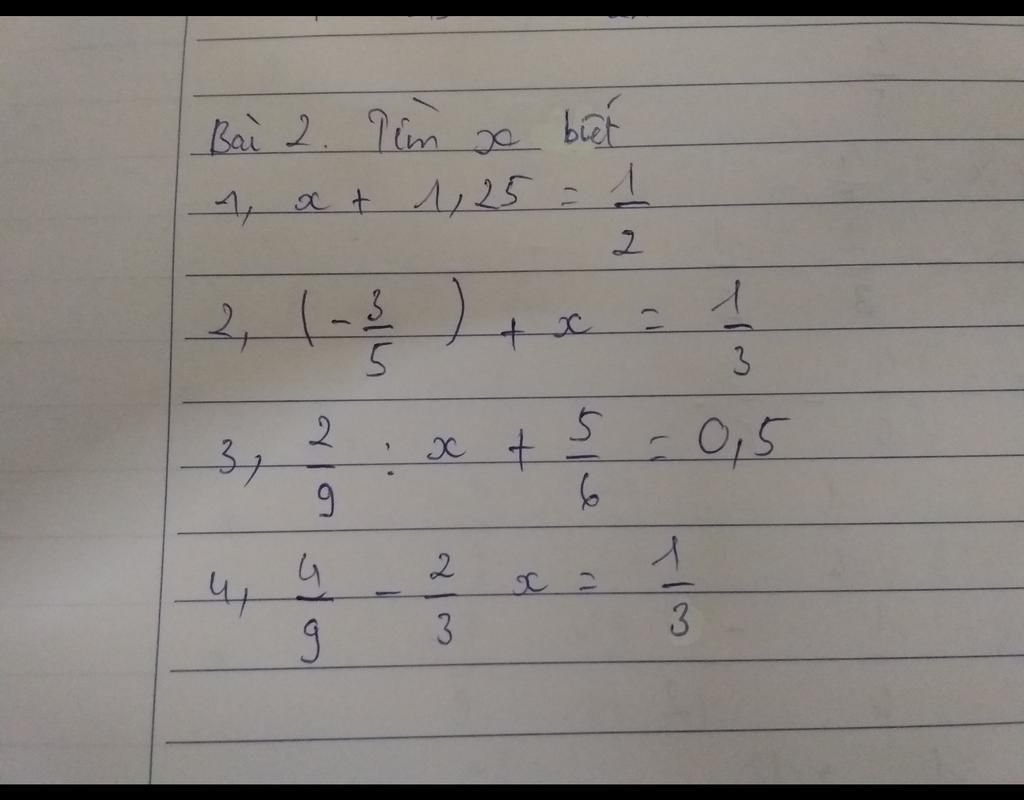 Bài 2. Tìm x biết
1, x + 1,25 = 1/2
2, (-3/5) + x = 1/3
3, 2/9 : x + 5/6 = 0,5
4, 4/9 - 2/3 x = 1/3